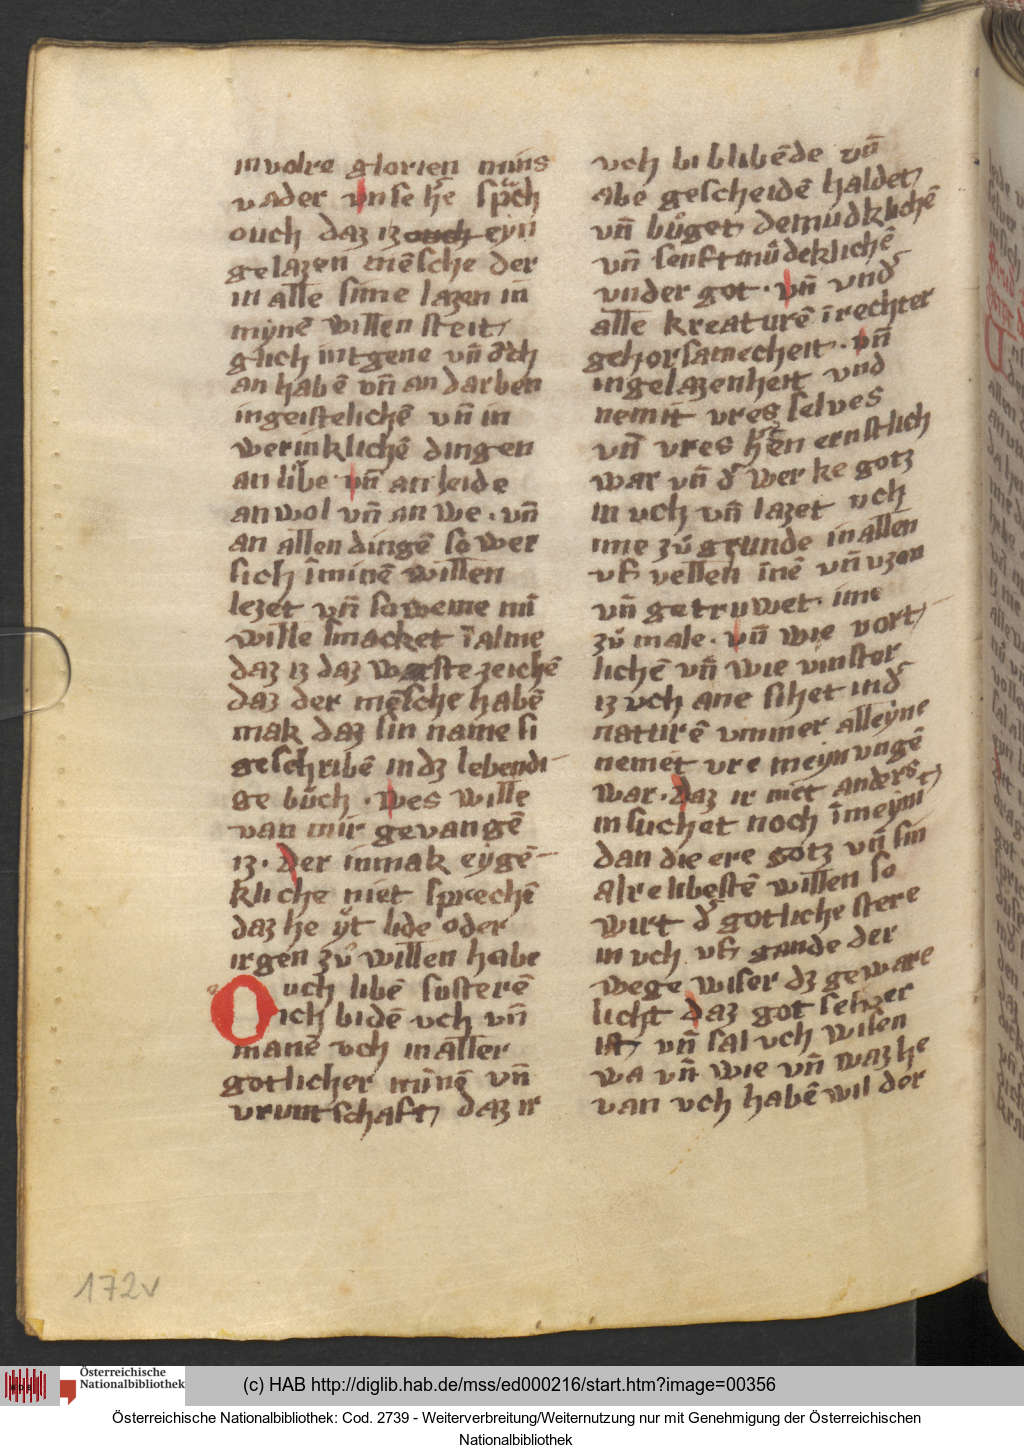 in volre glorien mins
vader vnse h̄e sp̄ch
ouch daz iz ouch eyn
gelazen mēsche der
in alle sime lazen in
mynē willen steit
glich intgene vn̄ d'ch
an habē vn̄ an darben
in geistelichē vn̄ in
werinklichē dingen
an libe vn̄ an leide
an wol vn̄ an we . vn̄
an allen dingē so wer
sich ī minē willen
lezet vn̄ so weme mī
wille smacket ī alme
daz iz daz warste zeichē
daz der mēsche habē
mak daz sin name si
geschribē in dz lebendi
ge bůch . wes wille
van mir gevangē
iz . der inmak eygē
kliche niet sprechē
daz he yt lide oder
irgen zů willen habe
Ouch libē susterē
ich bidē vch vn̄
manē vch in aller
gotlicher minē vn̄
vruntschaft daz ir
vch bi blibēde vn̄
abe gescheidē haldet
vn̄ bůget demudklichē
vn̄ senftmůdeklichē
vnder got . vn̄ vnd'
alle kreaturē ī rechter
gehorsamecheit . vn̄
in gelazenheit vnd
nemit vres selves
vn̄ vres h'zen ernstlich
war vn̄ d' werke gotz
in vch vn̄ lazet vch
ime zů grunde in allen
vf vellen īnē vn̄ vzen
vn̄ getruwet ime
zů male . vn̄ wie vort
lichē vn̄ wie vinster
iz vch ane sihet in d'
naturē vmmer alleyne
nemet vre meynungē
war . daz ir niet anders
in suchet noch ī meynit
dan die ere gotz vn̄ sin
alre libestē willen so
wirt d' gotliche stere
in vch vf gande der
wege wiser dz geware
licht daz got selver
ist vn̄ sal vch wisen
wa vn̄ wie vn̄ waz he
van vch habē wil der
172v
Österreichische
Nationalbibliothek
(c) HAB http://diglib.hab.de/mss/ed000216/start.htm?image=00356
Österreichische Nationalbibliothek: Cod. 2739 - Weiterverbreitung/Weiternutzung nur mit Genehmigung der Österreichischen
Nationalbibliothek